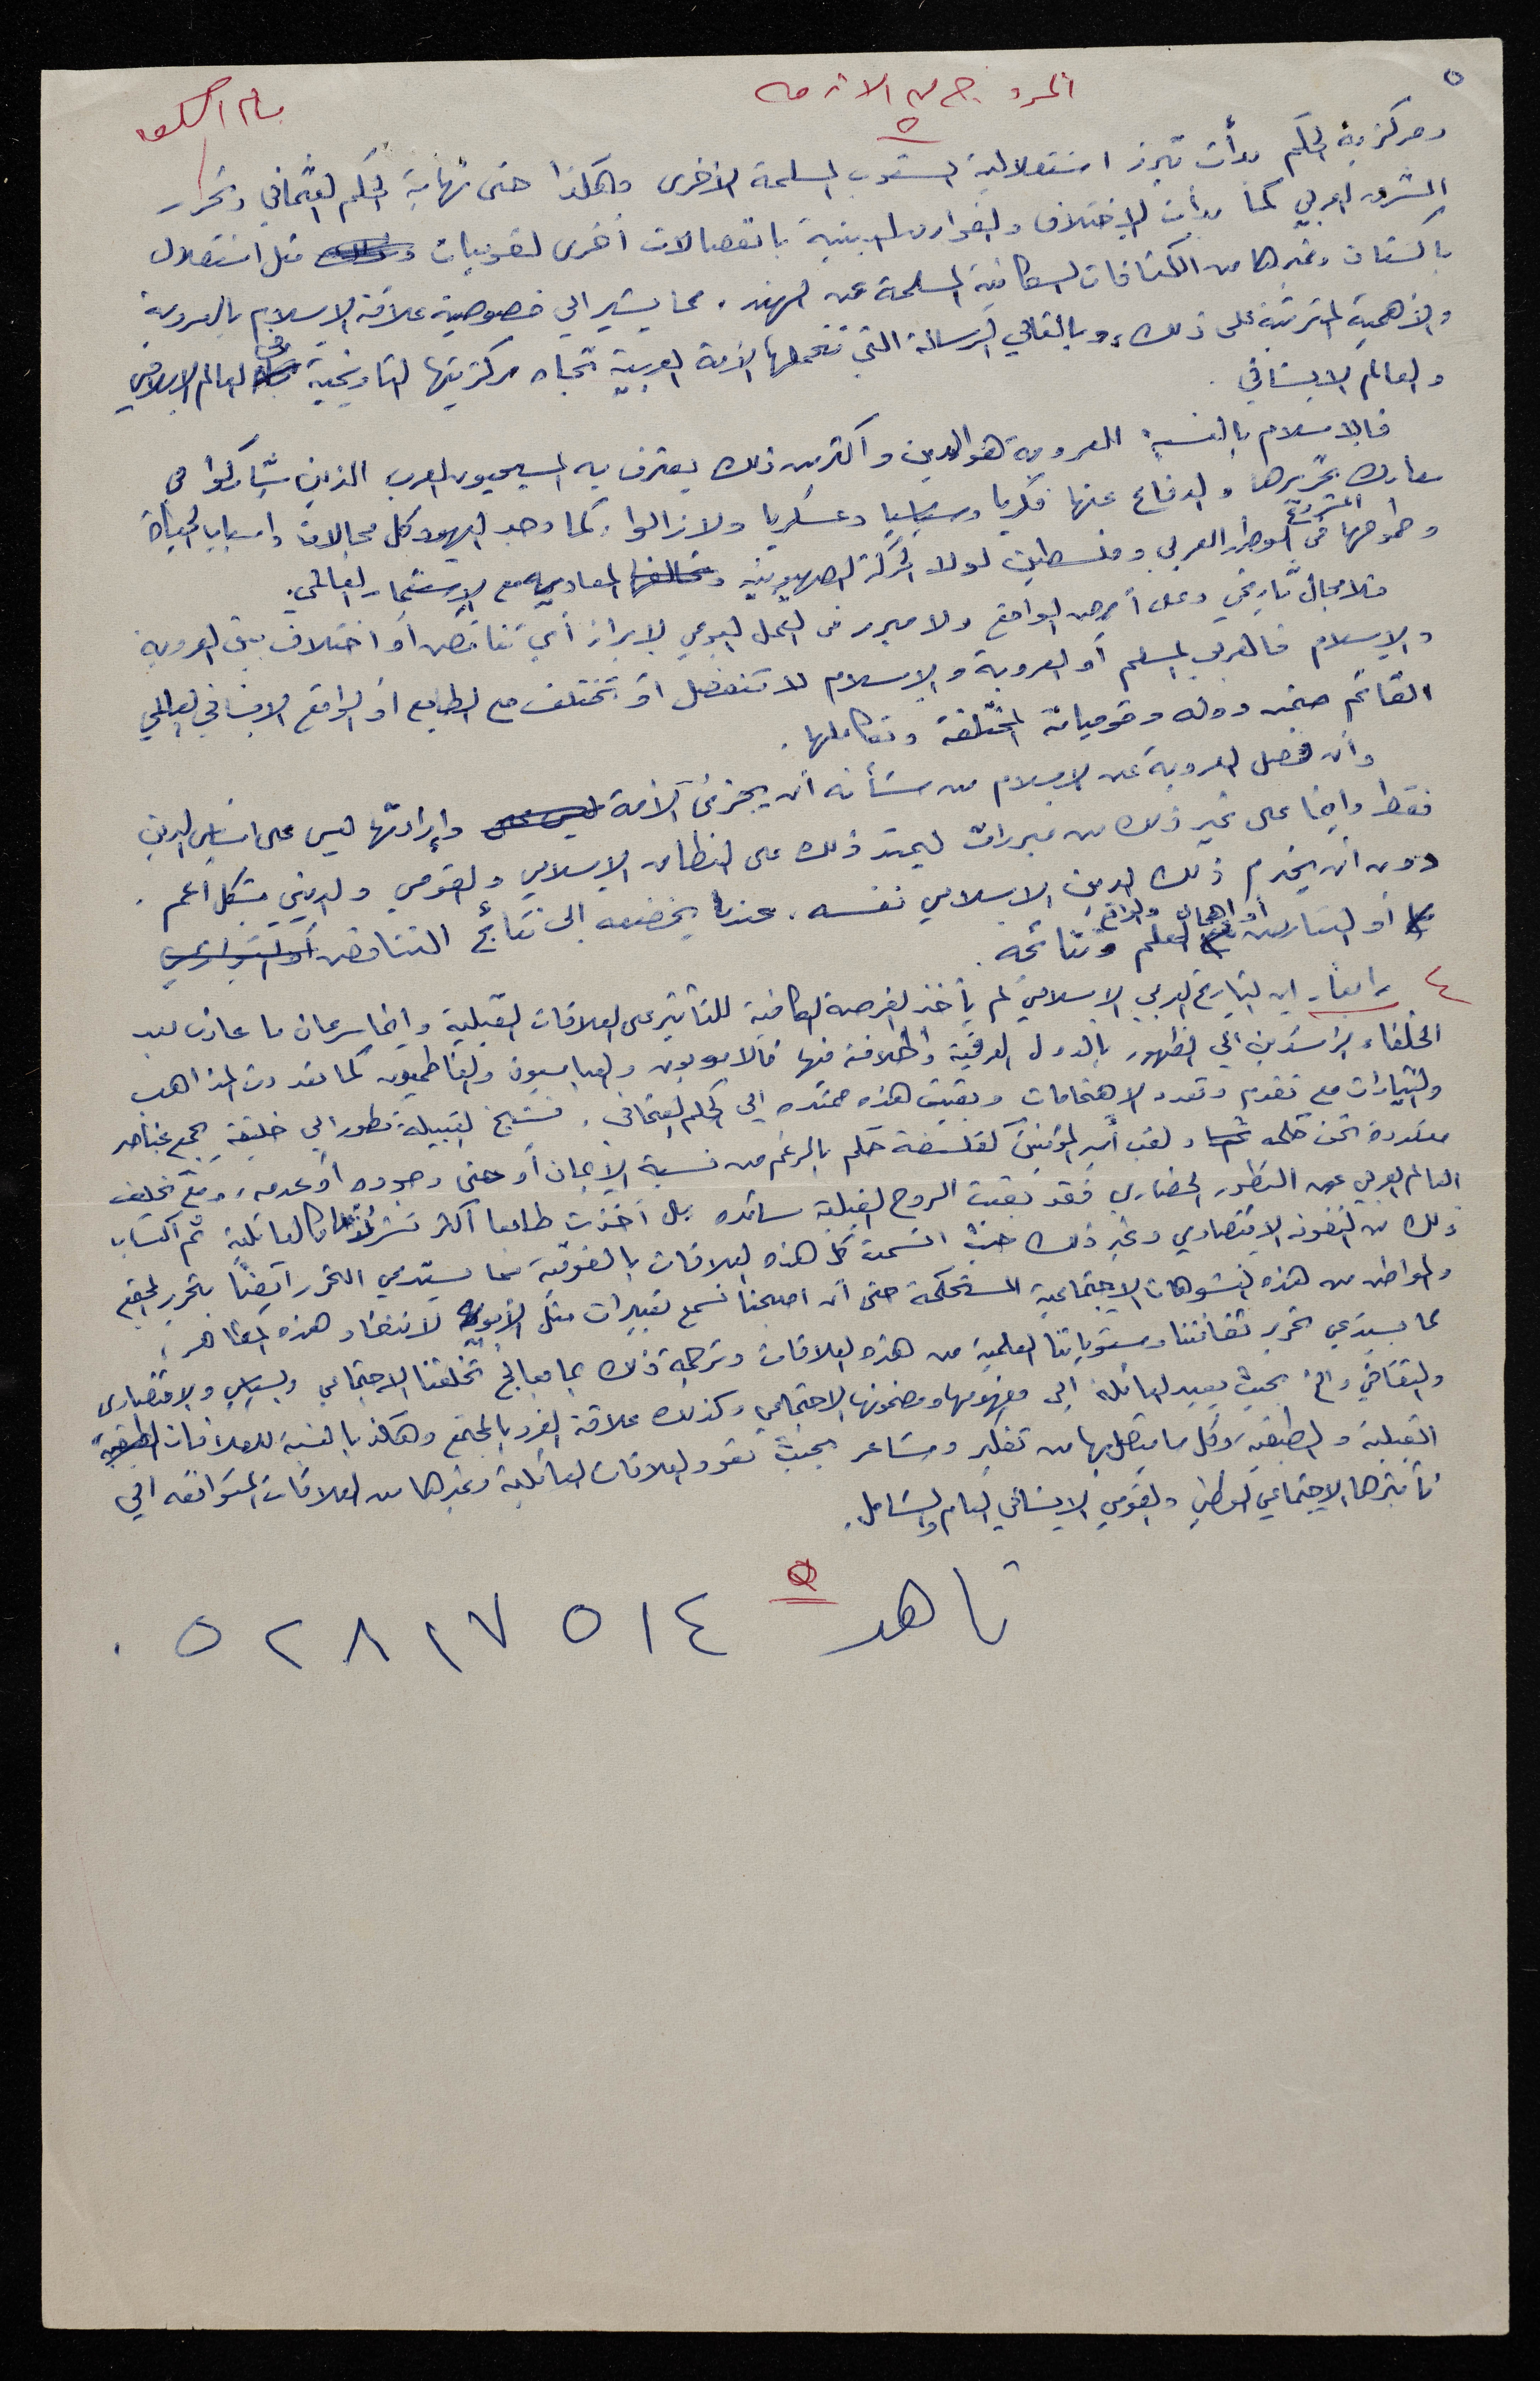 ٥
الخروج من الازمه
٥
بسام الشكعه
ومركزية الحكم بدأت تبرز استقلالية الشعوب المسلمة الأخرى وهكذا حتى نهاية الحكم العثماني وتحرر
المشرق العربي كما بدأت الإختلاف والفوارق الدينية بانفصالات أخرى لقوميات مثل استقلال
باكستان وغيرها من الكثافات السكانية المسلمة عن الهند. مما يشير الى خصوصية علاقة الإسلام بالعروبة
والأهمية المترتبة على ذلك، وبالتالي الرسالة التي تتحملها الأمة العربية تجاه مركزيتها التاريخية في العالم الإسلامي
والعالم الانساني.
فالاسلام بالنسبة للعروبة هو الدين وأكثر من ذلك يعترف به المسيحيون العرب الذين شاركوا في
معارك تحريرها والدفاع عنها فكريا وسياسيا وعسكريا ولا زالوا، كما وجد اليهود كل مجالات واسباب الحياة
وطموحها المشروع في الوطن العربي وفلسطين لولا الحركة الصهيونية وتحالفها المعادي مع الإستعمار العالمي.
فلا مجال تاريخي وعلى أرض الواقع ولا مبرر في العمل اليومي لإبراز أي تناقض أو اختلاف بين العروبة
والإسلام فالعربي المسلم أو العروبة والإسلام لا تنفصل أو تختلف مع الطابع أو الواقع الانساني العالمي
القائم ضمن دوله وقومياته المختلفة وتكاملها.
وأن فصل العروبة عن الإسلام من شأنه أن يجزئ الأمة وإرادتها ليس على اساس الدين
فقط وإنما على غير ذلك من مبررات ليمتد ذلك على النطاق الإسلامي والقومي والديني بشكل أعم.
دون ان يخدم ذلك الدين الاسلامي نفسه. عندما يخضعه إلى نتائج التناقض
أو التعارض أو اهمال العلم والواقع ونتائجه.
٤ رابعا، إن التاريخ العربي الإسلامي لم يأخذ الفرصة الكافية للتأثير على العلاقات القبلية وإنما سرعان ما عادت بعد
الخلفاء الراشدين الى الظهور بالدول العرقية والخلافة فيها فالامويون والعباسيون والفاطميون كما تعددت المذاهب
والتيارات مع تقدم وتعدد الاهتمامات وبقيت هذه ممتده الى الحكم العثماني. فشيخ القبيلة تطور الى خليفة يجمع عناصر
متعددة تحت حكمه ولقب أمير المؤمنين كفلسفة حكم بالرغم من نسبة الإيمان أو حتى وجوده أو عدمه، ومع تخلف
العالم العربي عن التطور الحضاري فقد بقيت الروح القبلية سائده بل أخذت طابعا أكثر تشرذما كالعائلية ثم اكتساب
ذلك من النفوذ الاقتصادي وغير ذلك حيث اتسمت كل هذه العلاقات بالفوقية مما يستدعي التحرر أيضًا بتحرير المجتمع
والمواطن من هذه التشوهات الإجتماعية المستحكمة حتى أن اصبحنا نسمع تعبيرات مثل الأبويه لانتقاد هذه المظاهر،
كما يستدعي تحرير ثقافتنا ومستوياتنا العلمية من هذه العلاقات وتركمة ذلك بما يعالج تخلفنا الاجتماعي والسياسي والإقتصادي
والثقافي والخ، بحيث يعيد العائلة إلى مفهومها ومضمونها الاجتماعي وكذلك علاقة الفرد بالمجتمع وهكذا بالنسبة للعلاقات
القبلية والطبقيه، وكل ما يتصل بها من تفكير ومشاعر بحيث تعود العلاقات العائلية وغيرها من العلاقات المتوافقه الى
تأثيرها الإجتماعي الوطني والقومي الإنساني العام والشامل.
ناهد ٥ ٠٥٢٨١٧٥١٤